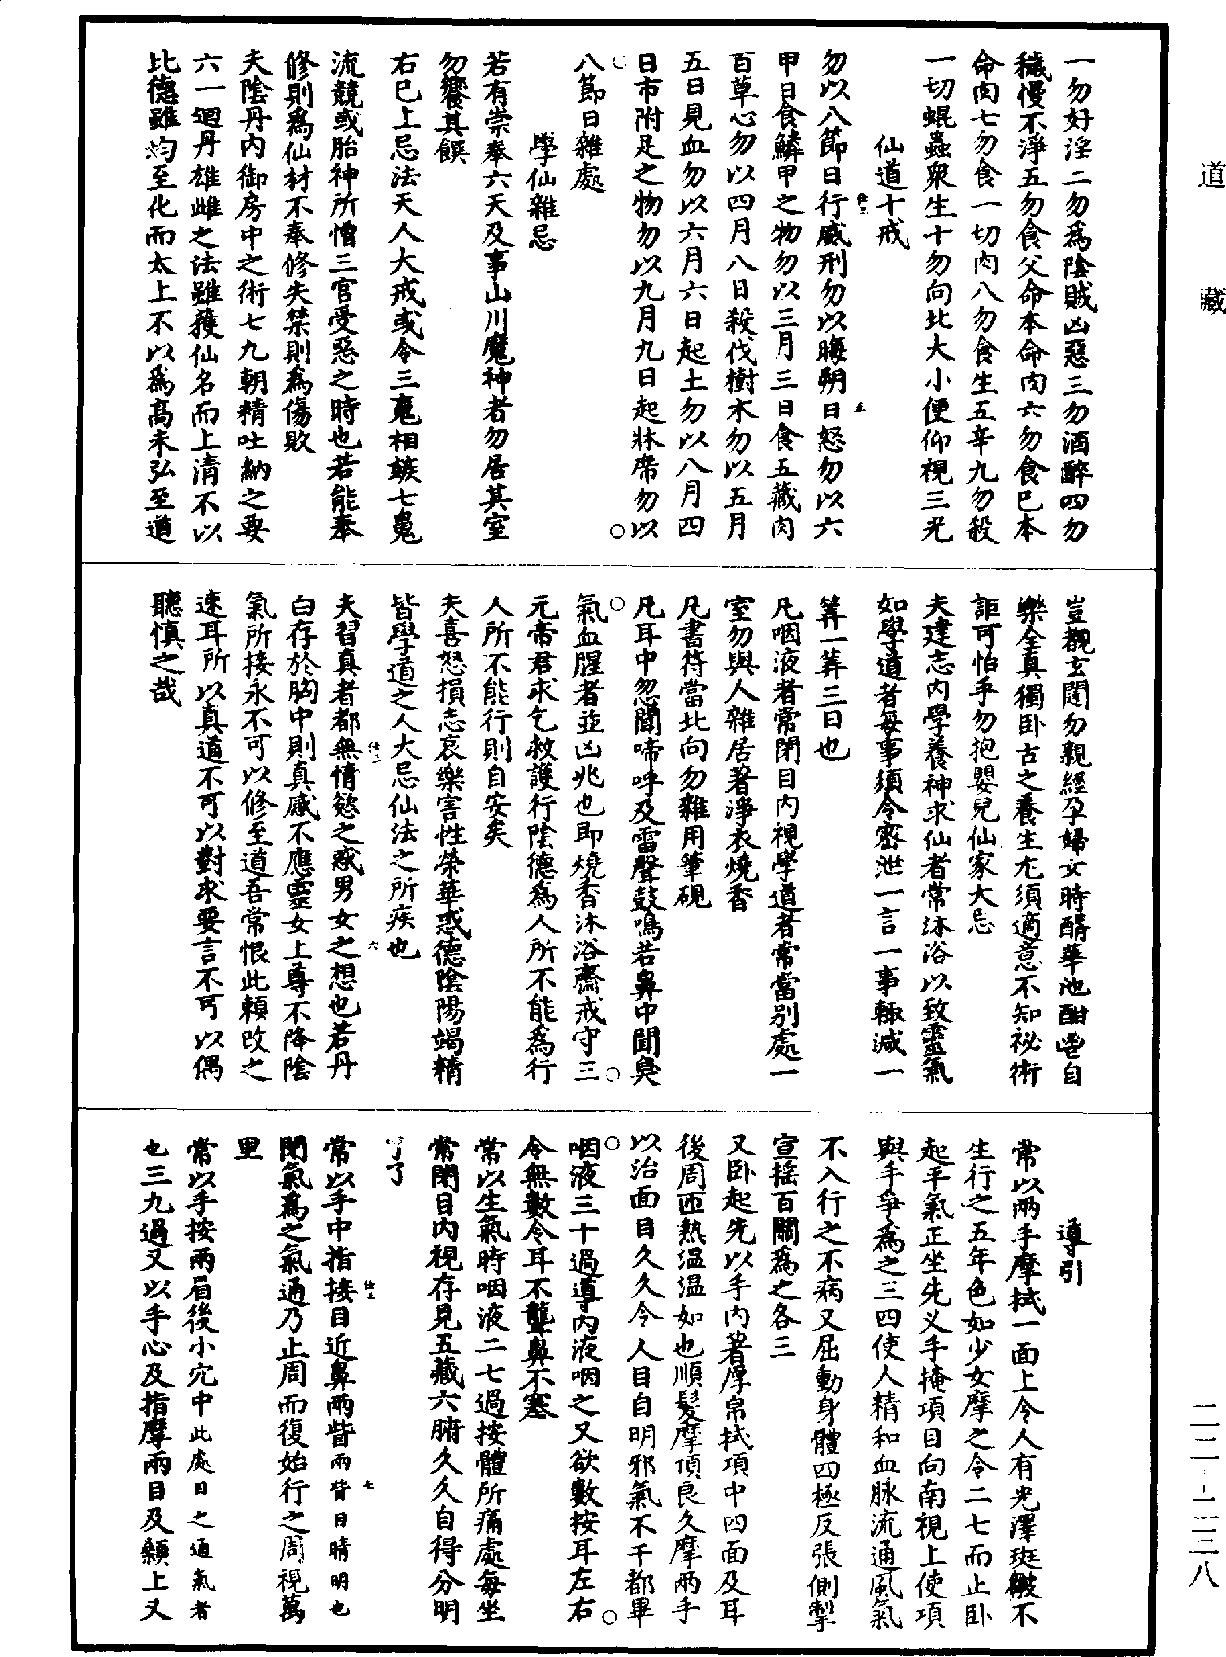 道藏
一勿好淫二勿爲陰賊凶惡三勿酒醉四勿
穢慢不淨五勿食父命本命肉六勿食已本
命肉七勿食一切肉八勿食生五辛九勿殺
一切蜫蟲衆生十勿向北大小便仰視三光
仙道十戒
勿以八節日行威刑勿以晦朔日怒勿以六
甲日食鱗甲之物勿以三月三日食五藏肉
百草心勿以四月八日殺伐樹木勿以五月
五日見血勿以六月六日起土勿以八月四
日市附足之物勿以九月九日起牀席勿以
八節日雜處
學仙雜忌
若有崇奉六天及事山川魔神者勿居其室
勿饗其饌
右已上忌法天人大戒或令三䰟相嫉七鬼
流競或胎神所憎三官受惡之時也若能奉
修則爲仙材不奉修失禁則爲傷敗
夫陰丹內御房中之術七九朝精吐納之要
六一迴丹雄雌之法雖獲仙名而上清不以
比德雖均至化而太上不以爲高未弘至道
豈觀玄閫勿親經孕婦女時醑華池酣鬯自
樂全真獨卧古之養生尤須適意不知祕術
詎可怕乎勿抱嬰兒仙家大忌
夫建志內學養神求仙者常沐浴以致靈氣
如學道者每事須令密泄一言一事輒減一
筭一筭三日也
凡咽液者常閉目內視學道者常當別處一
室勿與人雜居著淨衣燒香
凡書符當北向勿雜用筆硯
凡耳中忽聞啼呼及雷聲鼓鳴若鼻中聞臭
氣血腥者並凶兆也即燒香沐浴齋戒守三
元帝君求乞救護行陰德爲人所不能爲行
人所不能行則自安矣
夫喜怒損志哀樂害性榮華惑德陰陽竭精
皆學道之人大忌仙法之所疾也
夫習真者都無情慾之惑男女之想也若丹
白存於胸中則真感不應靈女上尊不降陰
氣所接永不可以修至道吾常恨此賴改之
速耳所以真道不可以對求要言不可以偶
聽慎之哉
導引
常以兩手摩拭一面上令人有光澤斑皺不
生行之五年色如少女摩之令二七而止卧
起平氣正坐先义手掩項目向南視上使項
與手爭爲之三四使人精和血脉流通風氣
不入行之不病又屈動身體四極反張側掣
宣摇百關爲之各三
又卧起先以手內著厚帛拭項中四面及耳
後周匝熱温温如也順髮摩頂良久摩兩手
以治面目久久令人目自明邪氣不干都畢
咽液三十過導內液咽之又欲數按耳左右
令無數令耳不聾鼻不塞
常以生氣時咽液二七過按體所痛處每坐
常閉目內視存見五藏六腑久久自得分明
了了
常以手中指接目近鼻兩眥兩眥目睛明也
閉氣爲之氣通乃止周而復始行之周視萬
里
常以手按兩眉後小穴中此處目之通氣者
也三九過又以手心及指摩兩目及顙上又